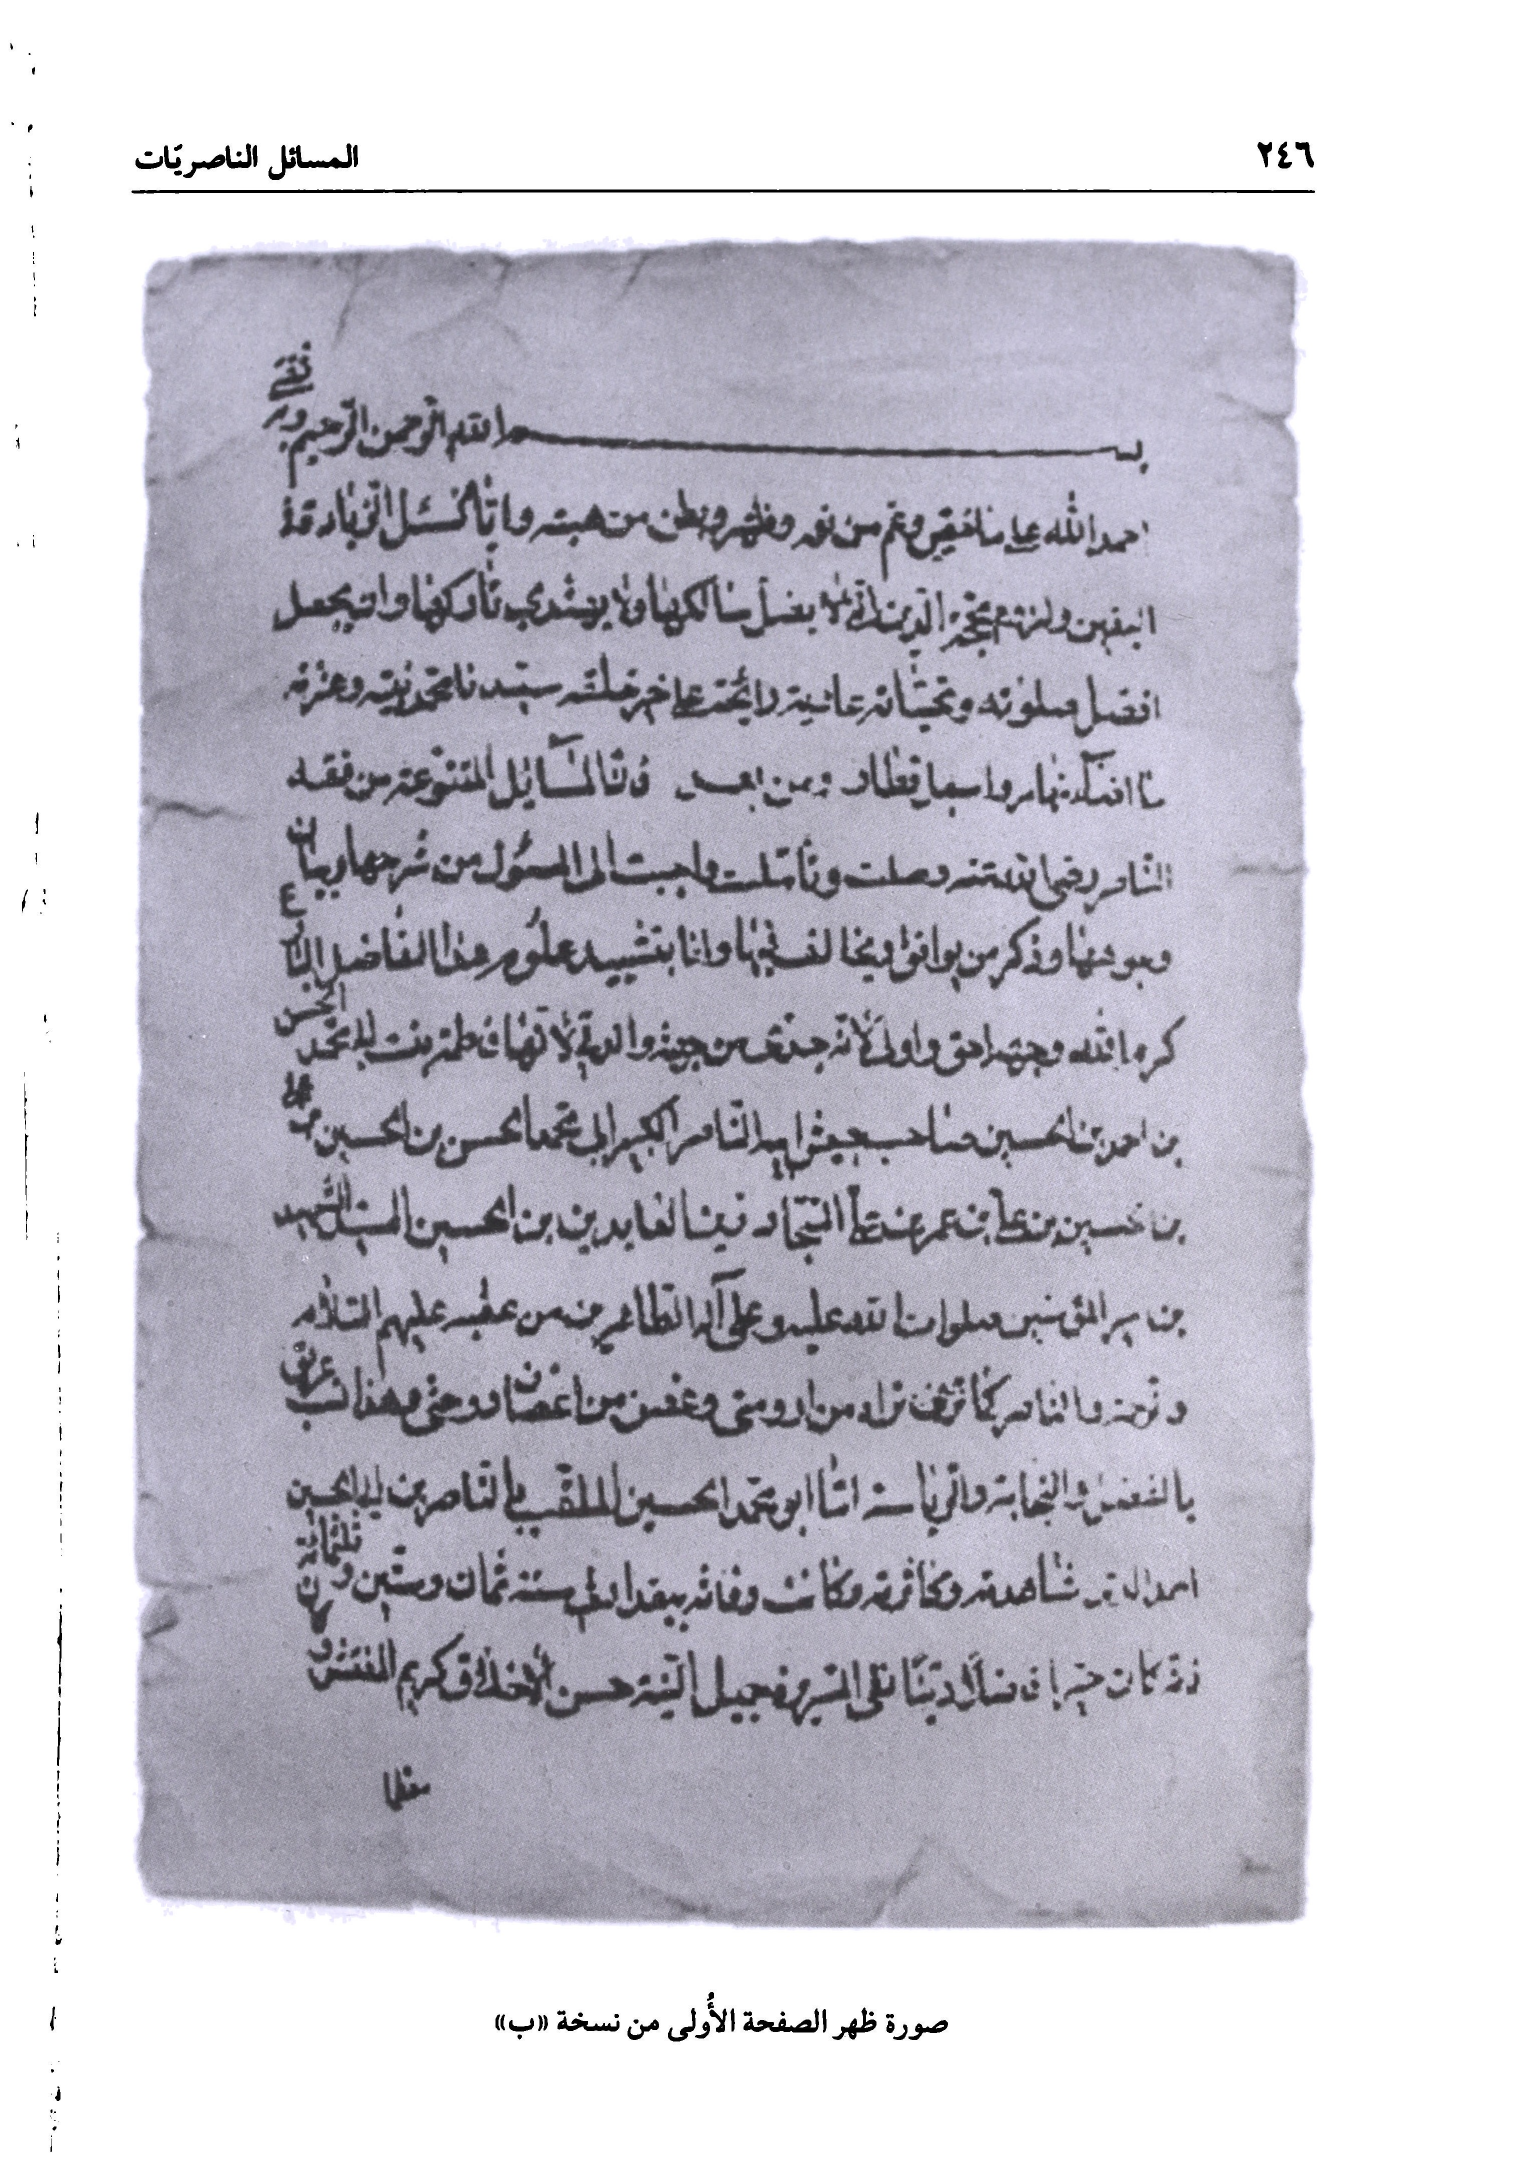 ٢٤٦ المسائل الناصريّات
بسم الله الرحمن الرحيم وبه ثقتي
احمد الله على ما خفي وعم من نوره وظهر وبطن من هبته واياه نسئل الزيادة
اليقين ولزوم محجة الدين التي لا يضل سالكها ولا يهتدي تاركها وان يجعل
افضل صلوته وتحياته غادية رايحة على خير خلقه سيدنا محمد نبيه وعترته
ما واسبل قطار ومن بعد فان المسايل المتنوعة من فقه
الناصر رضي الله عنه وصلت وتاملت واجبت الى المسؤل من شرحها وبيان
وجوهها وذكر من يوافق ويخالف فيها وانا بتشييد علوم هذا الفاضل البارع
كرم الله وجهه احق واولى لانه جدي من جهة والدتي لانها فاطمة بنت ابي محمد الحسن
بن احمد بن الحسين صاحب جيش ابيه الناصر الكبير ابي محمد الحسن بن الحسين
بن الحسين بن علي بن عمر بن علي السجاد زين العابدين بن الحسين السبط الشهيد
بن امير المؤمنين صلوات الله عليه وعلى آله الطاهرين من عقبه عليهم السلام
والناصر كما تراه من ارومتي وغصن من اغصان دوحتي وهذا نسب عريق
بالفضل والنجابة والرياسة اما ابو محمد الحسين الملقب بالناصر بن ابي الحسين
احمد الذي شاهدته وكاثرته وكانت وفاته ببغداد في سنة ثمان وستين وثلثمائة
فانه كان خيرا فاضلا دينا نقي السريرة جميل النية حسن الاخلاق كريم النفس و
صورة ظهر الصفحة الأُولى من نسخة «ب»